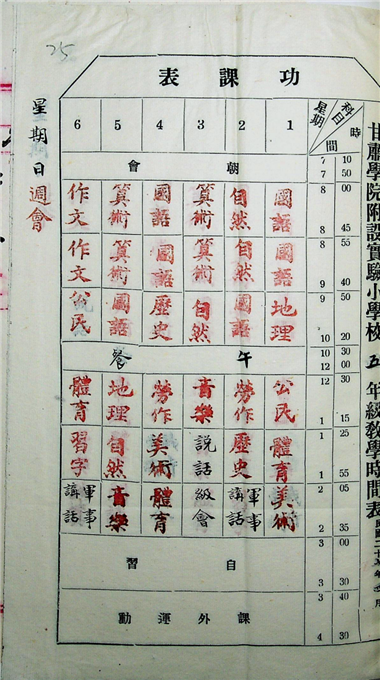 甘肅學院附設實驗小學校 五 年級教學時間表
功課表
科目 時間 星期 1 2 3 4 5 6
7 10 7 50 朝會
8 00 8 45 國語 自然 算術 國語 算術 作文
8 55 9 40 國語 自然 算術 國語 算術 作文
9 50 10 20 地理 國語 自然 歷史 國語 公民
10 30 12 00 午餐
12 30 1 15 公民 勞作 音樂 勞作 地理 體育
1 25 1 55 體育 歷史 說話 美術 自然 習字
2 05 2 35 美術 軍事講話 級會 體育 音樂 軍事講話
3 00 3 30 自習
3 40 4 30 課外運動
星期日週會
25